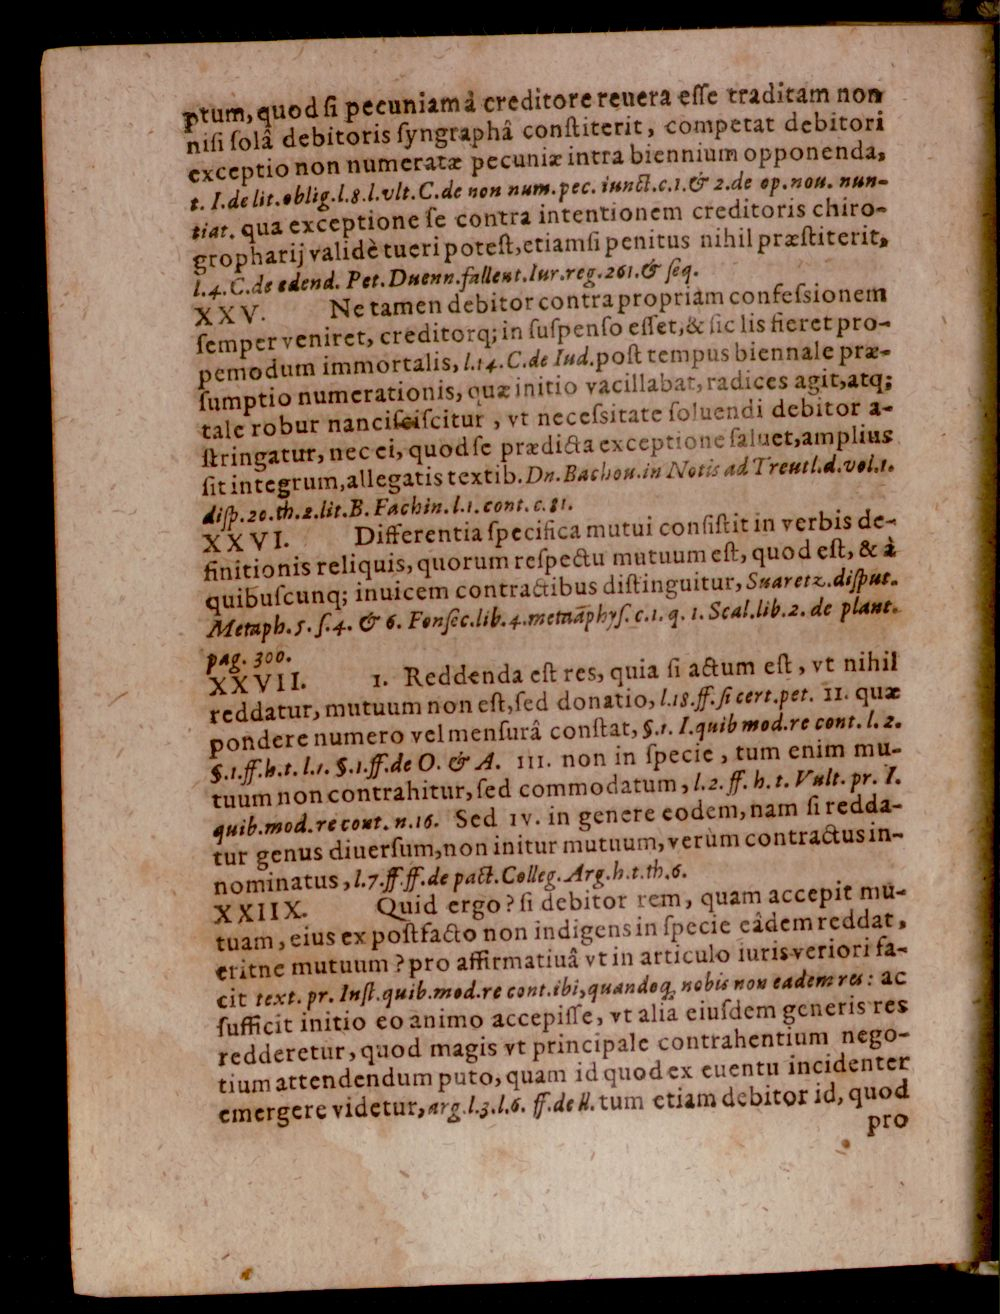 ptum, quod ſi pecuniam â creditore reuera eſſe traditam non
niſi ſolâ debitoris ſyngraphâ conſtiterit, competat debitori
exceptio non numeratæ pecuniæ intra biennium opponenda,
t. I. de lit. oblig. l. 8. l. vlt. C. de non num. pec. iunct. c. 1. & 2. de op. nou. nun-
tiat. qua exceptione ſe contra intentionem creditoris chiro-
gropharij validè tueri poteſt, etiamſi penitus nihil præſtiterit,
l. 4. C. de edend. Pet. Duenn. fallent. Iur. reg. 261. & ſeq.
XXV. Ne tamen debitor contra propriam confeſsionem
ſemper veniret, creditorq; in ſuſpenſo eſſet, & ſic lis fieret pro-
pemodum immortalis, l. 14. C. de Iud. poſt tempus biennale præ-
ſumptio numerationis, quæ initio vacillabat, radices agit, atq;
tale robur nanciſciſcitur, vt neceſsitate ſoluendi debitor a-
ſtringatur, nec ei, quod ſe prædicta exceptione ſaluet, amplius
ſit integrum, allegatis textib. Dn. Bachou. in Notis ad Treutl. d. vol. 1.
diſp. 20. th. 2. lit. B. Fachin. l. 1. cont. c. 81.
XXVI. Differentia ſpecifica mutui conſiſtit in verbis de-
finitionis reliquis, quorum reſpectu mutuum eſt, quod eſt, & à
quibuſcunq; inuicem contractibus diſtinguitur, Suaretz. diſput.
Metaph. 5. ſ. 4. & 6. Fonſec. lib. 4. metaphyſ. c. 1. q. 1. Scal. lib. 2. de plant.
pag. 300.
XXVII. 1. Reddenda eſt res, quia ſi actum eſt, vt nihil
reddatur, mutuum non eſt, ſed donatio, l. 18. ff. ſi cert. pet. II. quæ
pondere numero vel menſurâ conſtat, §. 1. I. quib mod. re cont. l. 2.
§. 1. ff. h. t. l. 1. §. 1. ff. de O. & A. III. non in ſpecie, tum enim mu-
tuum non contrahitur, ſed commodatum, l. 2. ff. h. t. Vult. pr. I.
quib. mod. re cont. n. 16. Sed IV. in genere eodem, nam ſi redda-
tur genus diuerſum, non initur mutuum, verùm contractus in-
nominatus, l. 7. ff. ff. de pact. Colleg. Arg. h. t. th. 6.
XXIIX. Quid ergo? ſi debitor rem, quam accepit mu-
tuam, eius ex poſtfacto non indigens in ſpecie eâdem reddat,
eritne mutuum? pro affirmatiuâ vt in articulo iuris veriori fa-
cit text. pr. Inſt. quib. mod. re cont. ibi, quandoq; nobis non eadem res: ac
ſufficit initio eo animo accepiſſe, vt alia eiuſdem generis res
redderetur, quod magis vt principale contrahentium nego-
tium attendendum puto, quam id quod ex euentu incidenter
emergere videtur, arg. l. 3. l. 6. ff. de ll. tum etiam debitor id, quod
pro